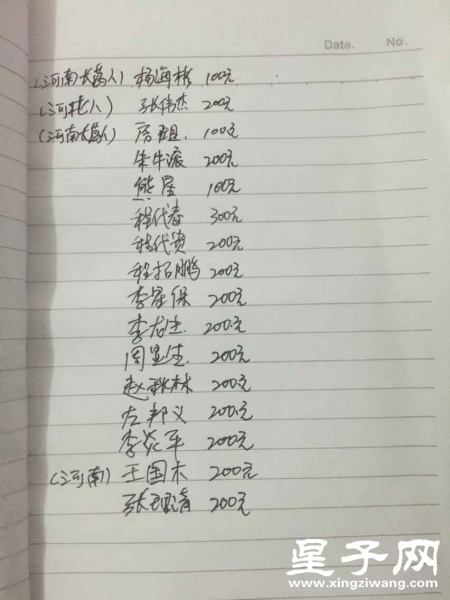 Date. No.
(河南长葛人) 杨海彬 100元
(河北人) 张伟杰 200元
(河南长葛人) 100元
朱牛滚 200元
熊星 100元
程代春 300元
程代贵 200元
程招鹏 200元
李星保 200元
李龙生 200元
周显生 200元
赵秋林 200元
左邦义 200元
李炎平 200元
(河南) 王国木 200元
张理清 200元
星子网
www.xingziwang.com